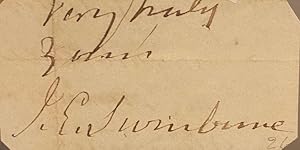 Very truly
Yours
J. E. Swinburne